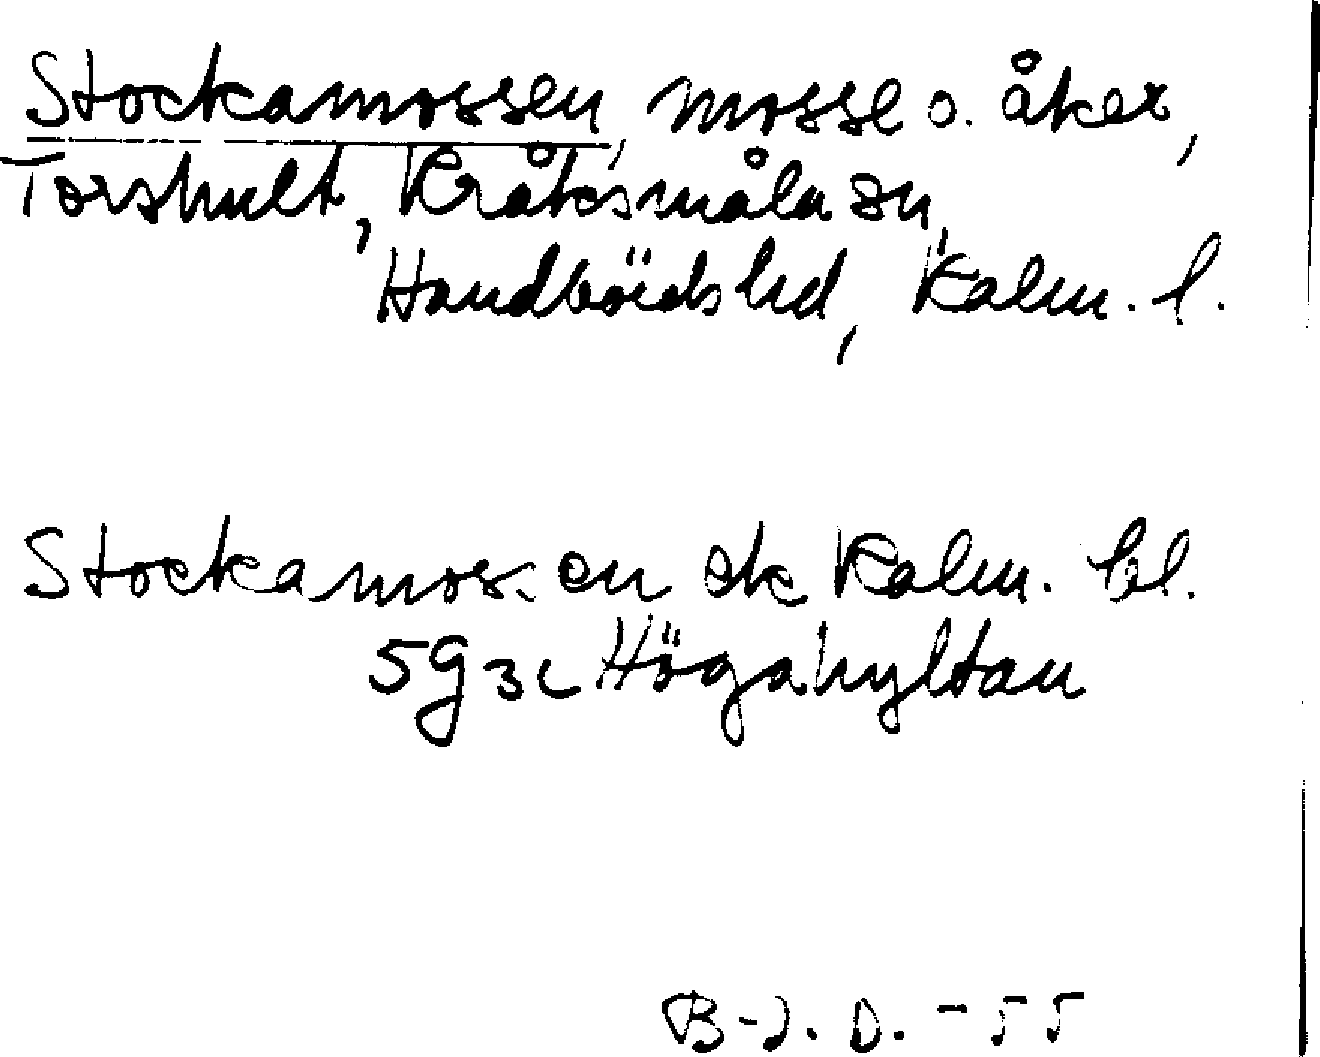 Stockamossen, mosse o. åker,
Torshult, Kråksmåla sn,
Handbörds hd, Kalm. l.
Stockamossen ek Kalm. bl.
5g3c Högahyltan
B-J. D. -55